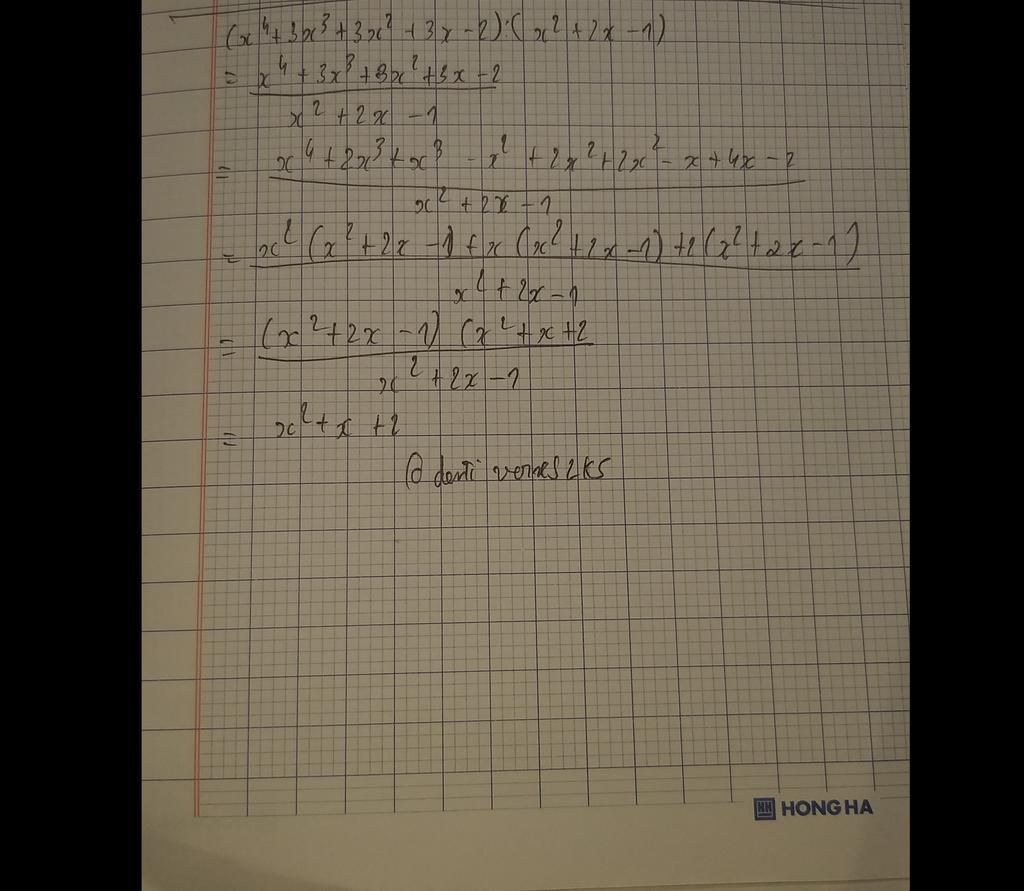 (x⁴+3x³+3x²+3x-2):(x²+2x-1)
= x⁴+3x³+3x²+3x-2
x²+2x-1
= x⁴+2x³+x³-x²+2x²+2x²-x+4x-2
x²+2x-1
= x²(x²+2x-1)+x(x²+2x-1)+2(x²+2x-1)
x²+2x-1
= (x²+2x-1)(x²+x+2
x²+2x-1
= x²+x+2
HH HONG HA